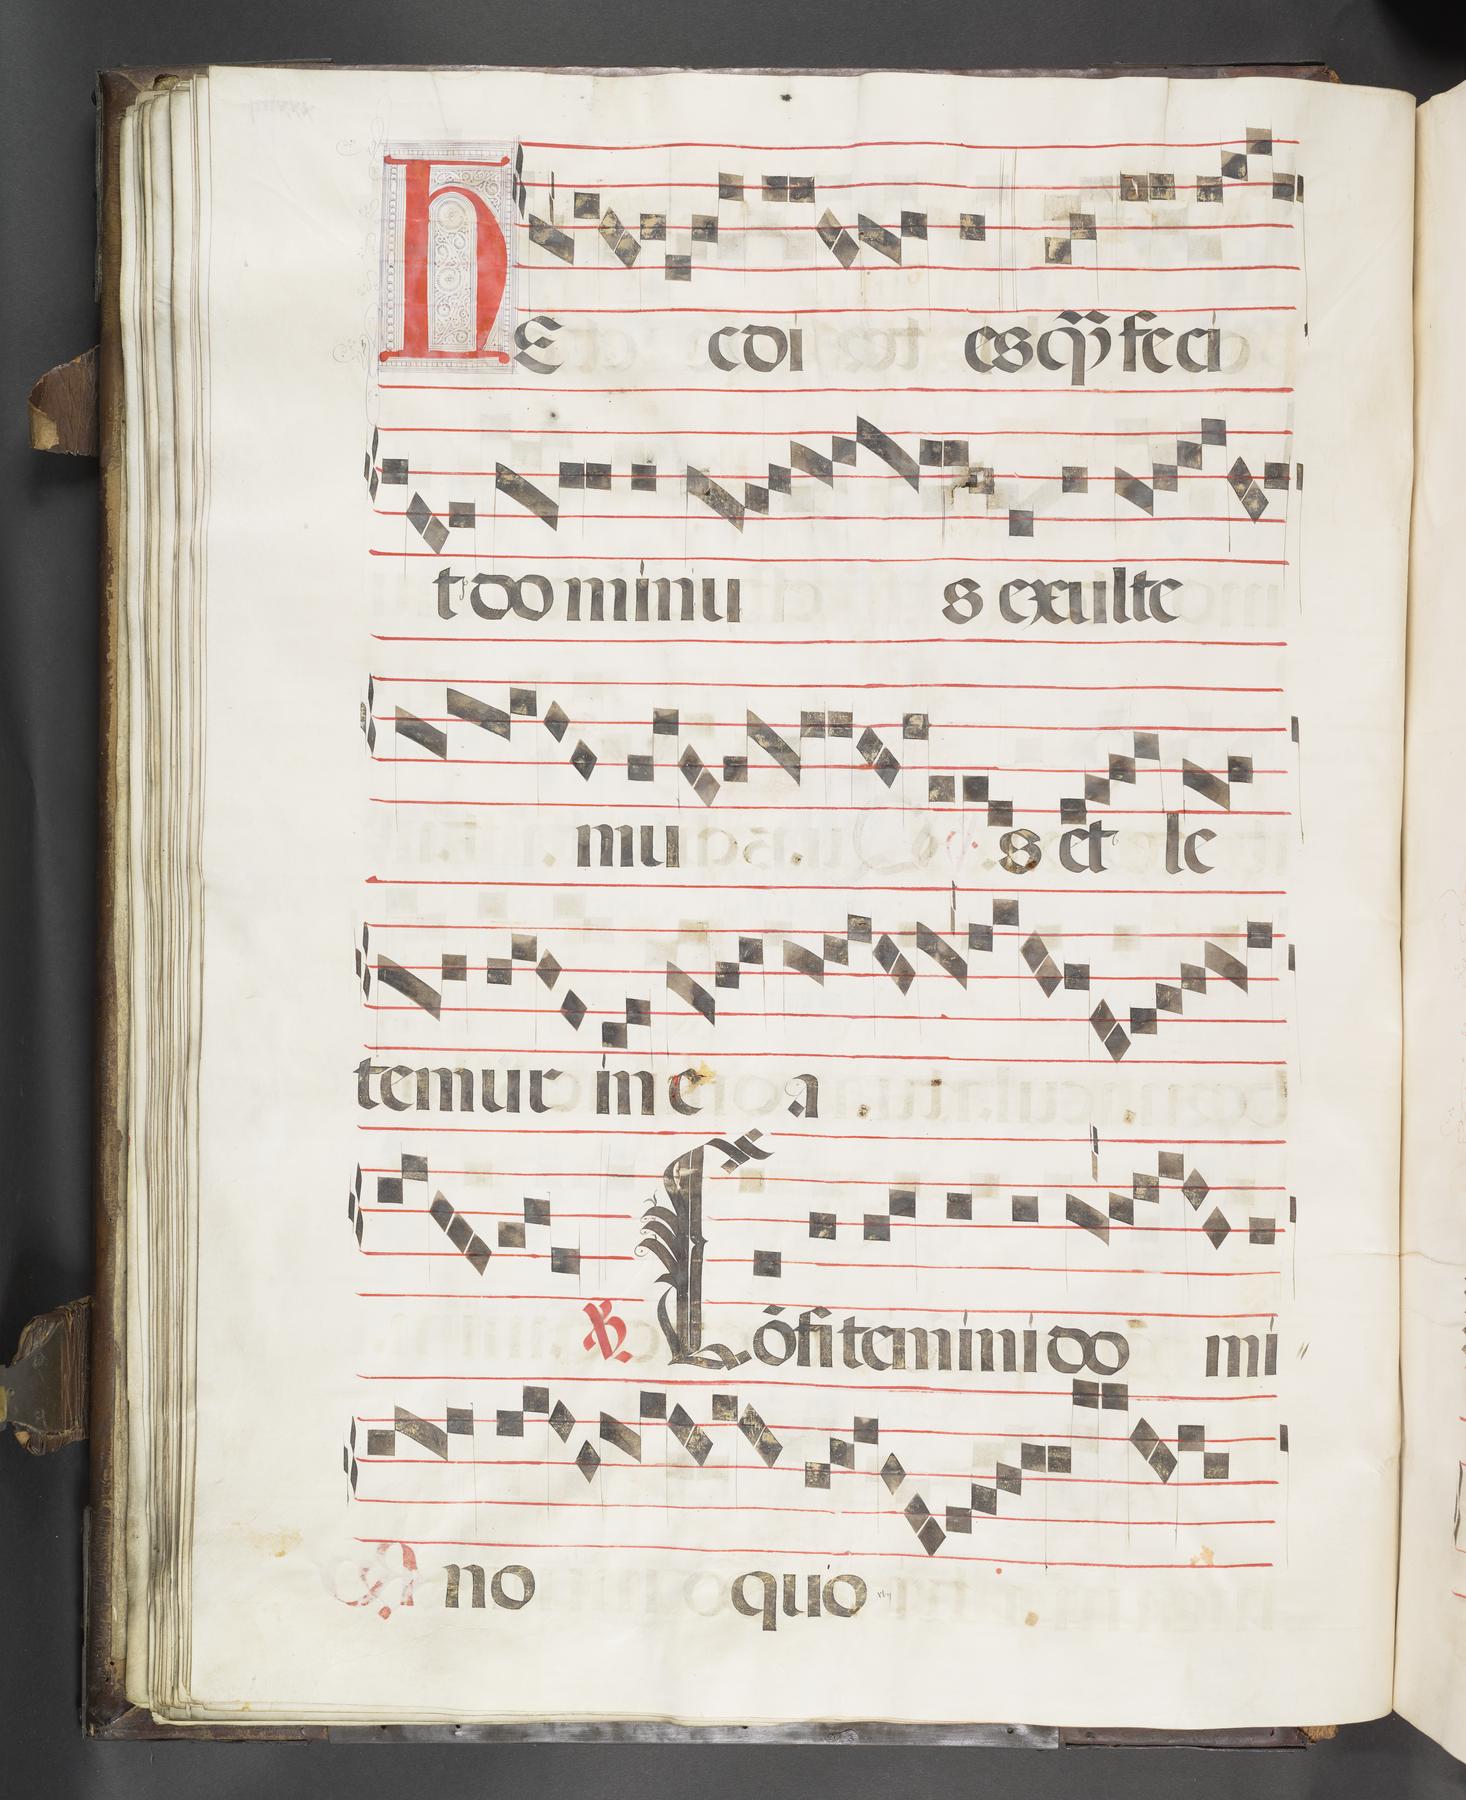 hE c di esq̃ feci
t do minu s exulte
mu s et le
temur in e a
℟. Cōfitemini do mi
no quo